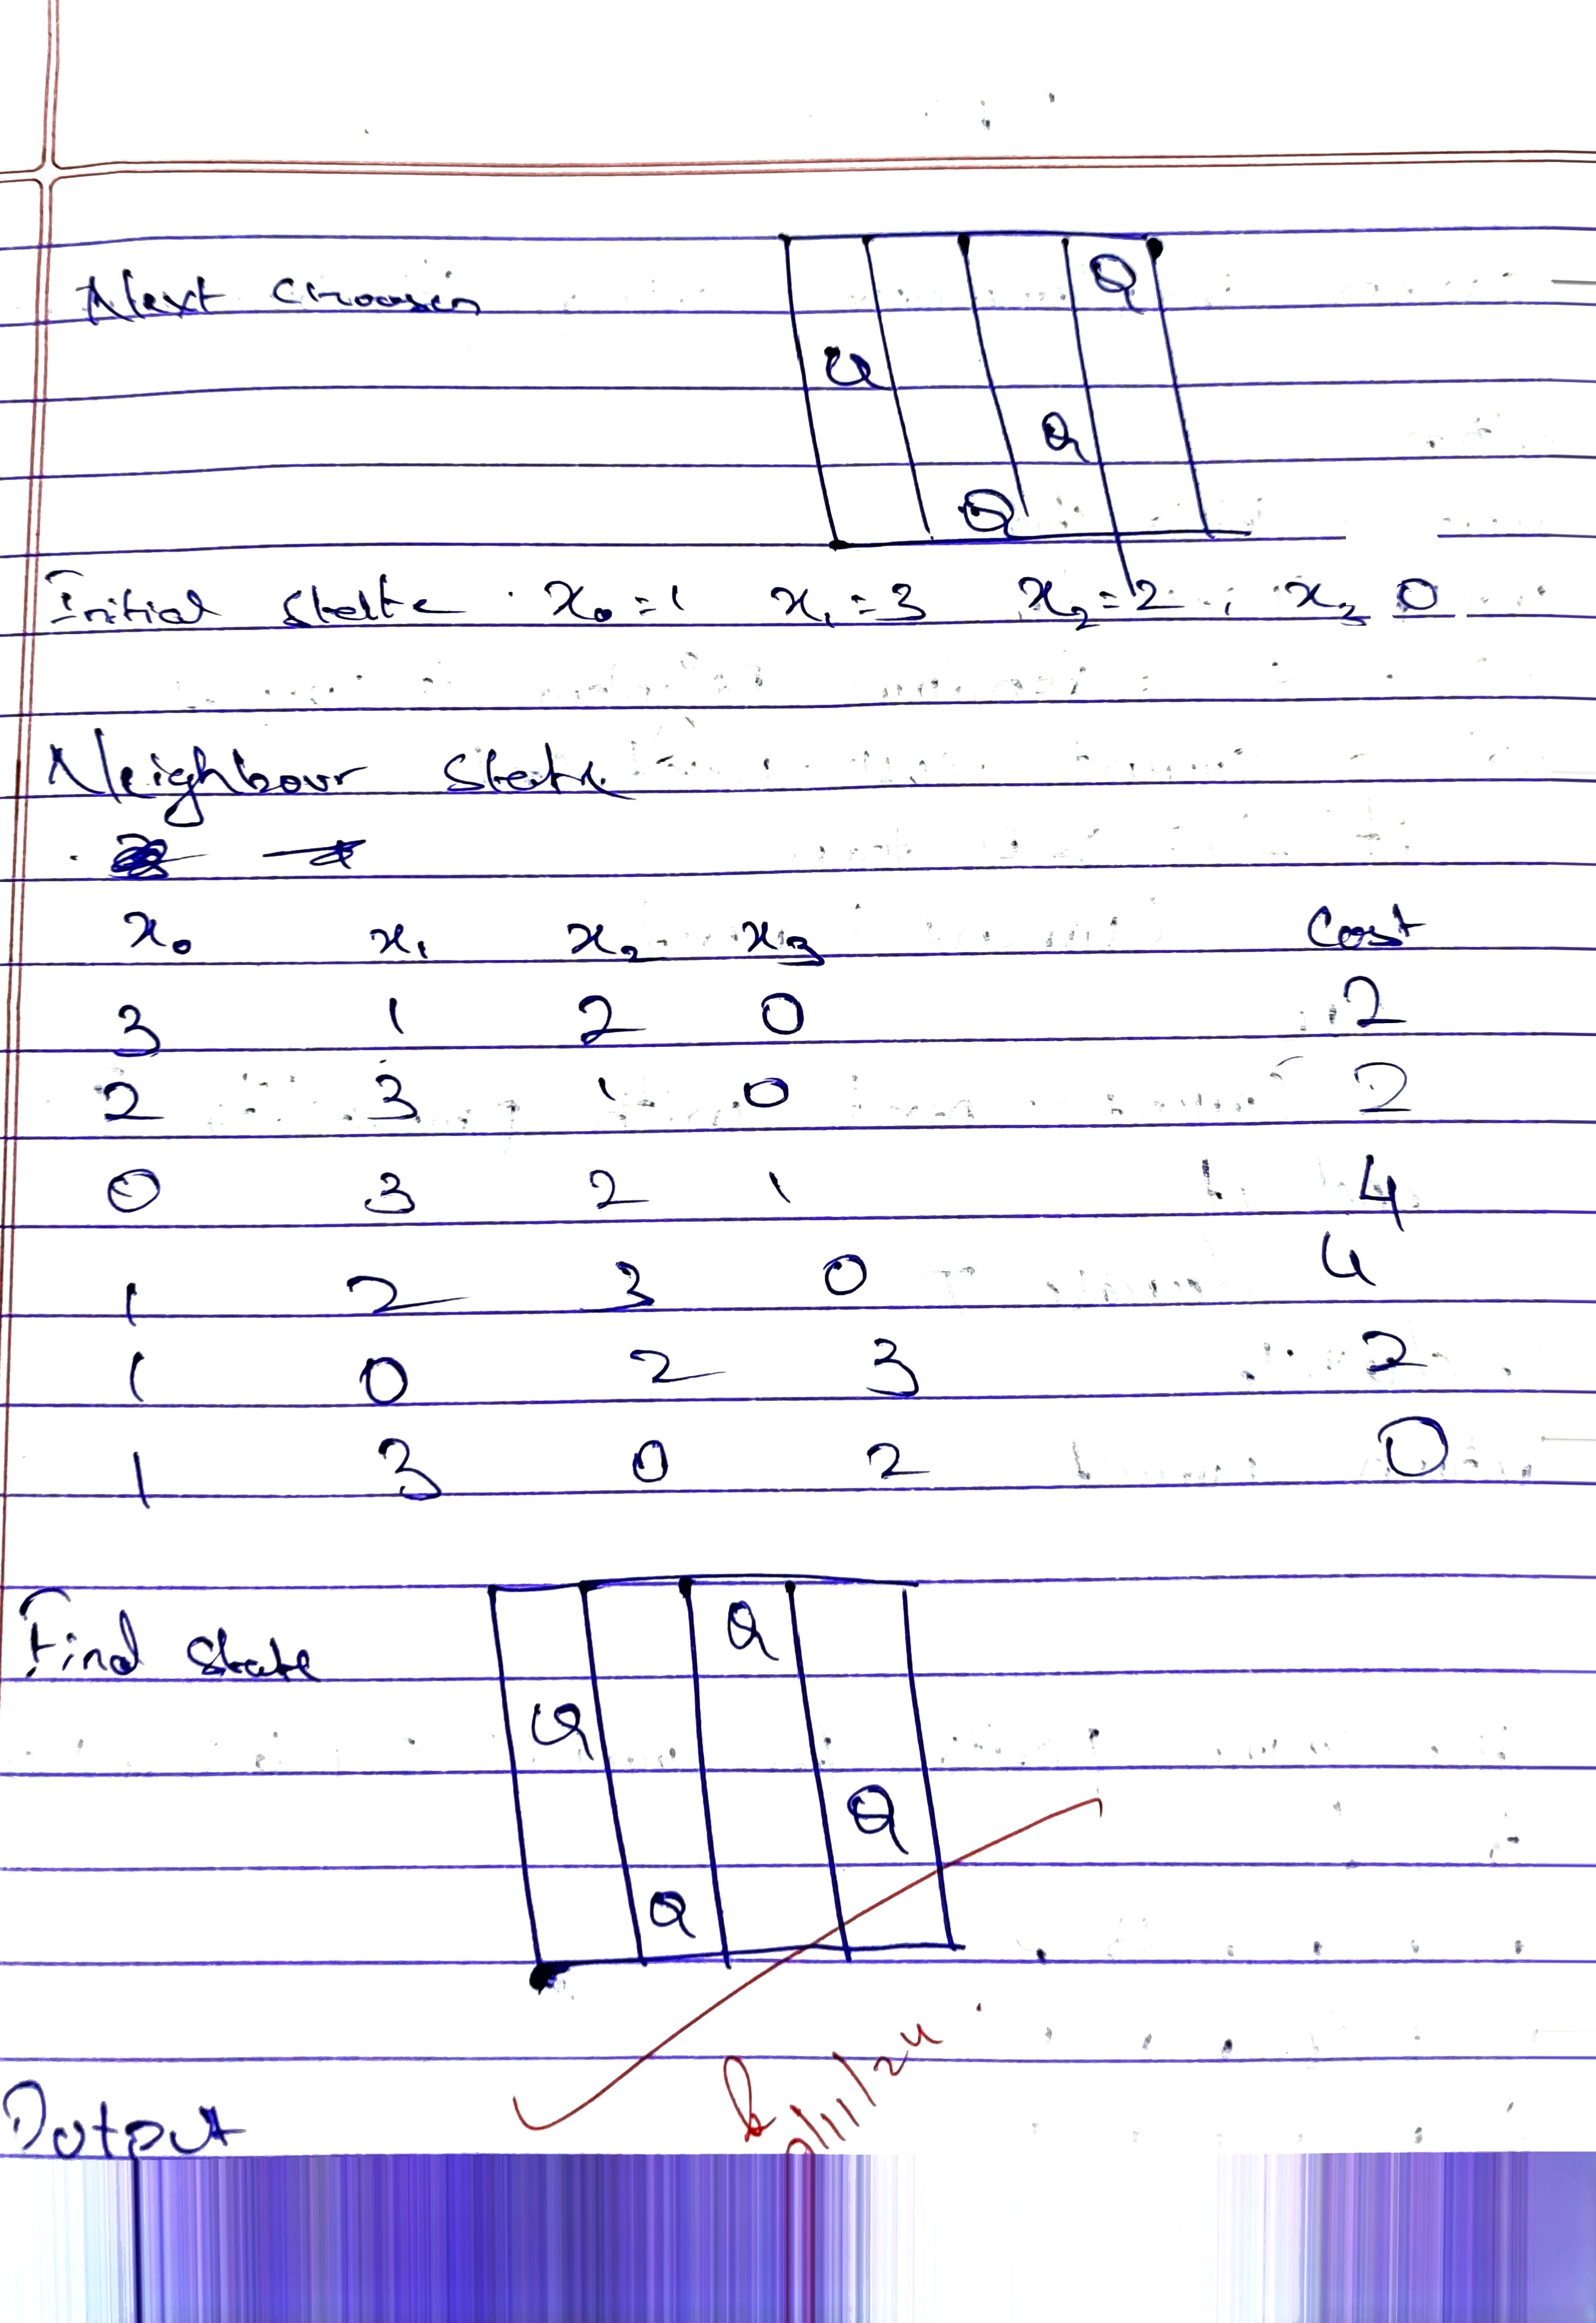 Next choosen
Q
Q
Q
Q
Initial State x₀=1 x₁=3 x₂=2 ; x₃ 0
Neighbour State
x₀ x₁ x₂ x₃ Cost
3 1 2 0 2
2 3 1 0 2
0 3 2 1 4
1 2 3 0 4
1 0 2 3 2
1 3 0 2 0
Final State
Q
Q
Q
Q
/11/24
Output